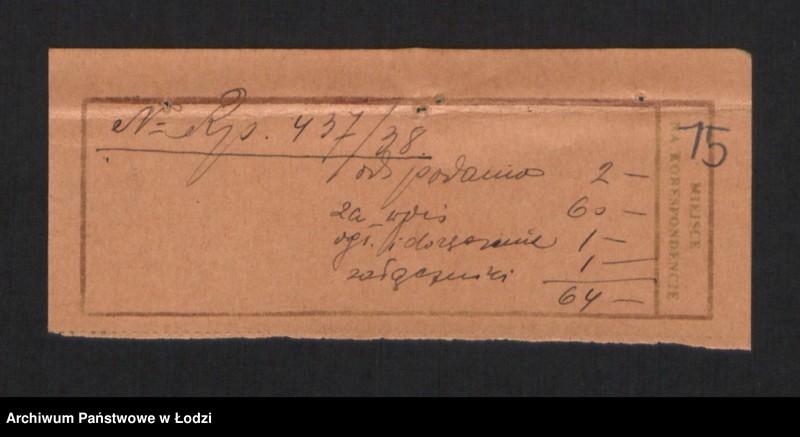 № Rp. 437/38.
15
od podania 2 —
za wpis 60 —
ogł. i doręczenie 1 —
załączniki 1 —
64 —
MIEJSCE
NA KORESPONDENCJĘ
Archiwum Państwowe w Łodzi